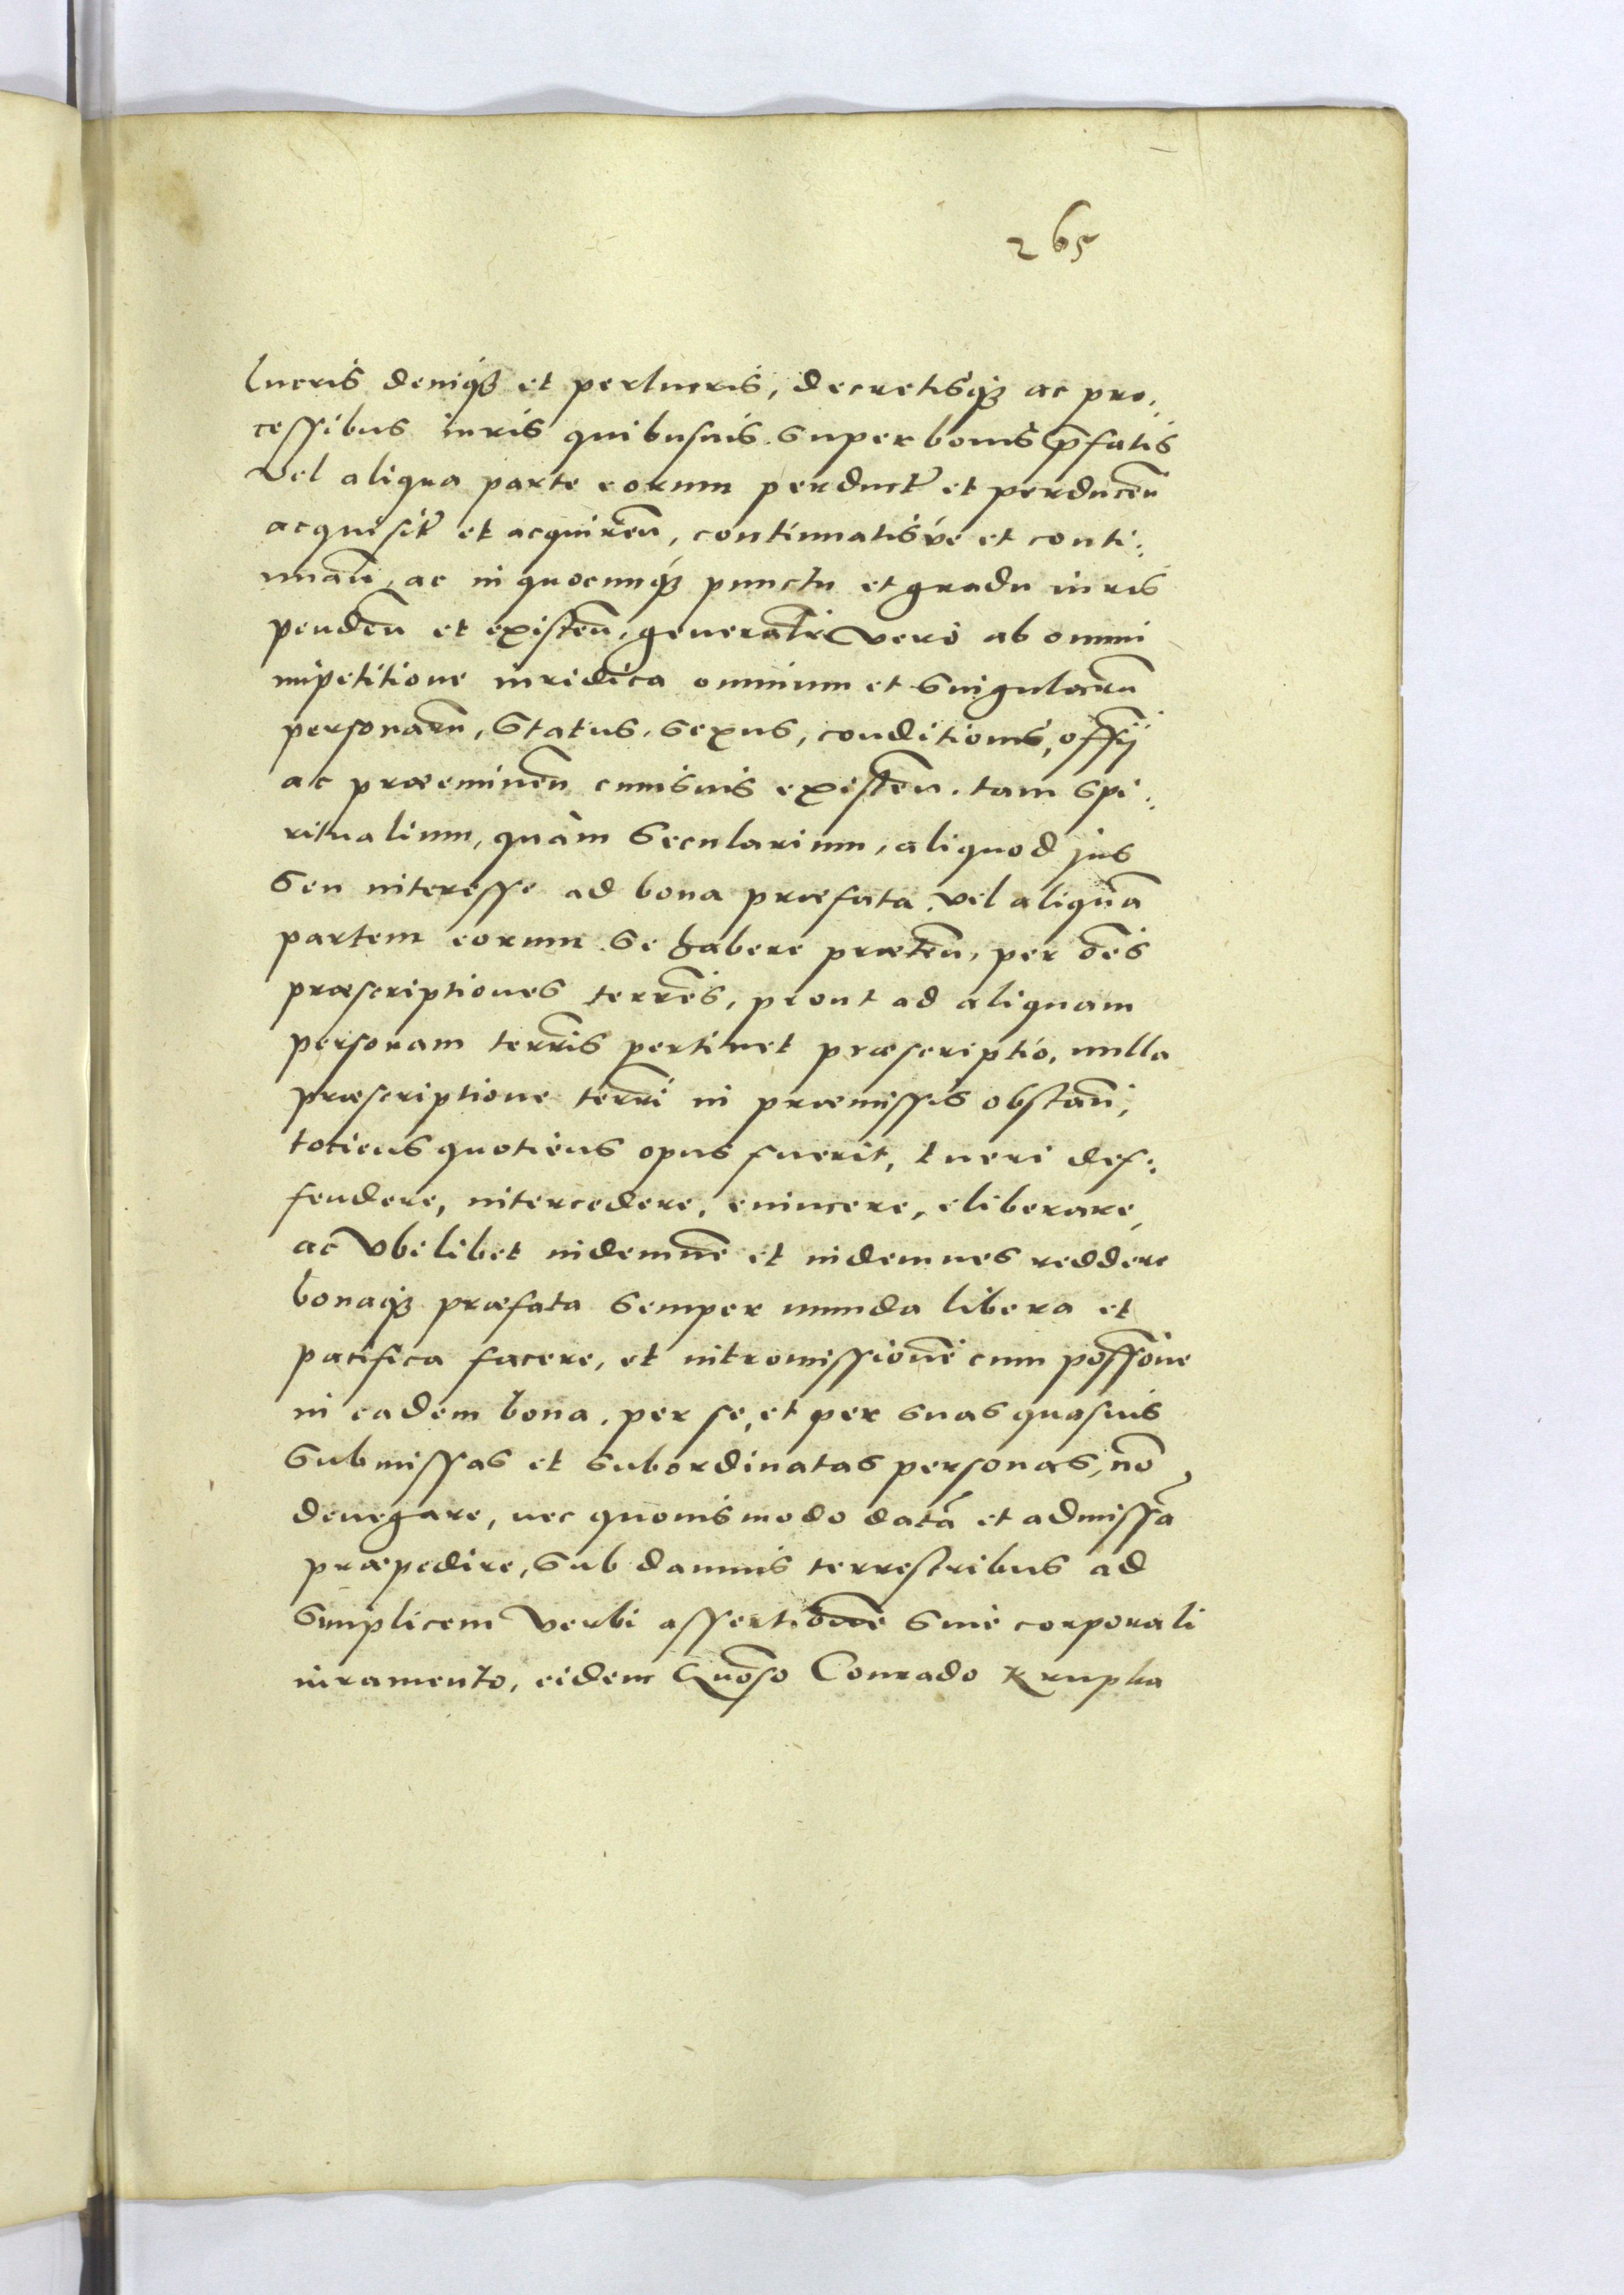 265
lucris deniq₃ et perlucris, decretisq₃ ac pro:
cessibus iuris quibusuis super bonis p̄fatis
vel aliqua parte eorum perduct̃ et perduceñ
acquisit̃ et acquireñ, continuatisvé et conti:
nuañ, ac in quocunq₃ punctu et gradu iuris
pendeñ et existeñ, generalr̃ verò ab omni
impetitione iuridica omnium et singularũ
personarũ, status, sexus, conditionis, offĩj
ac præemineñ cuiusuis existeñ. tam spi:
ritualium, quàm secularium, aliquod jus
seu interesse ad bona præfata vel aliquã
partem eorum se habere præteñ, per oẽs
præscriptiones terrẽs, prout ad aliquam
personam terrĩs pertinet præscriptio, nulla
præscriptione terrĩ in præmissis obstañ,
totiens quotiens opus fuerit, tueri def:
fendere, intercedere, euincere, eliberare,
ac vbilibet indemnẽ et indemnes reddere
bonaq₃ præfata semper munda libera et
pacifica facere, et intromissionẽ cum possõne
in eadem bona, per se, et per suas quasuis
submissas et subordinatas personas, nõ
denegare, nec quouismodo datã et admissã
præpedire, sub damnis terrestribus ad
simplicem verbi assertionẽ sine corporali
iuramento, eidem Gñoso Conrado Krupka